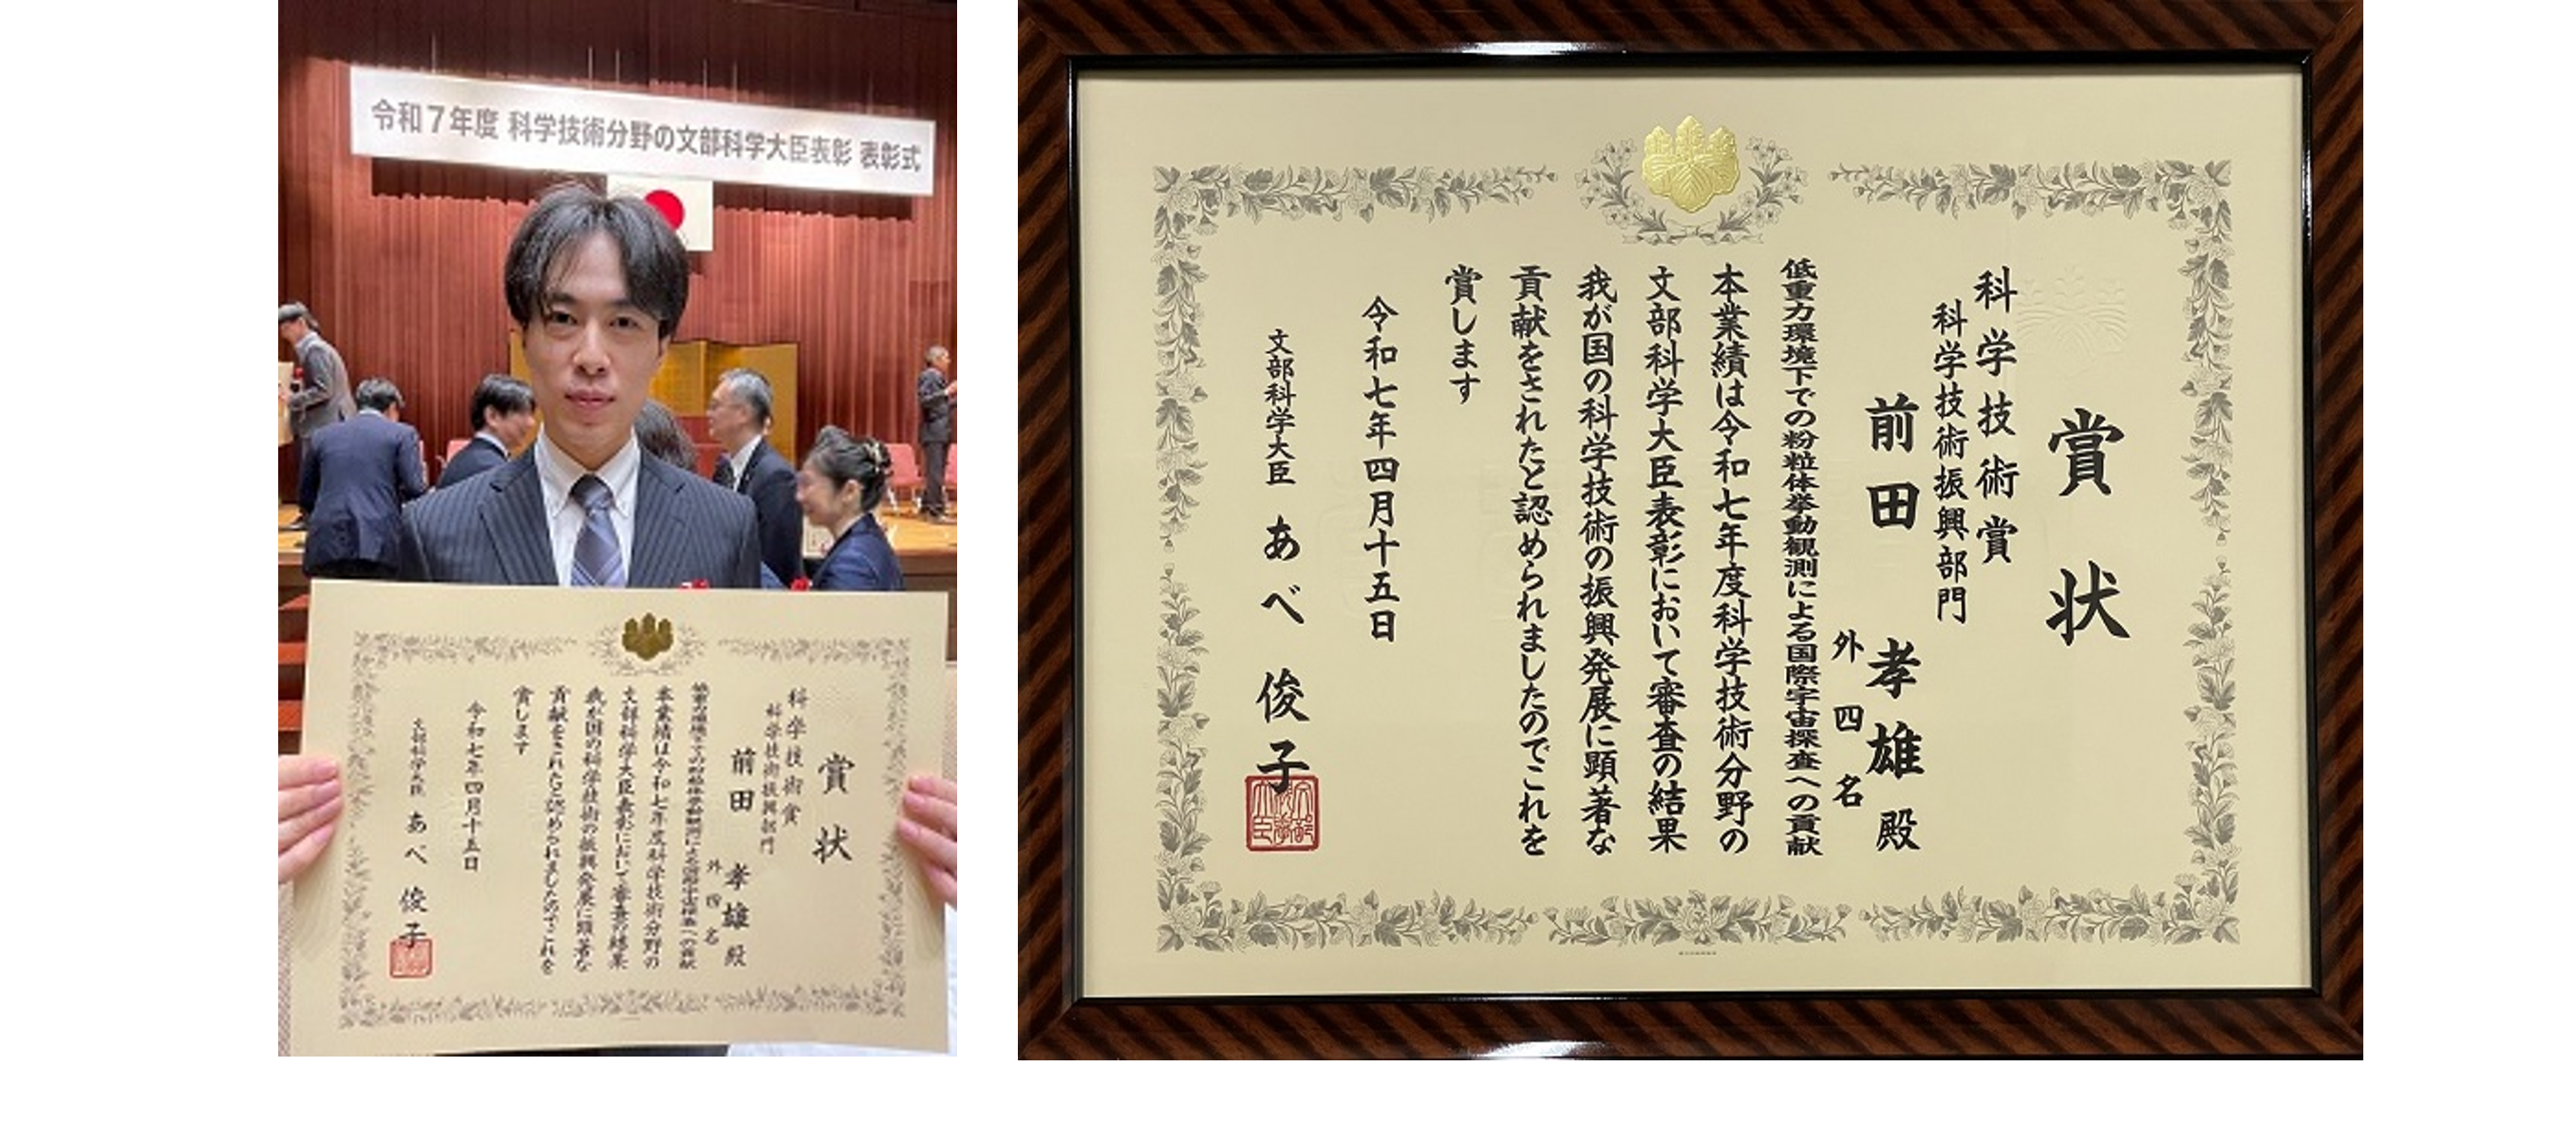 令和7年度 科学技術分野の文部科学大臣表彰 表彰式
賞状
科学技術賞
科学技術振興部門
前田 孝雄 殿
外四名
低重力環境下での粉粒体挙動観測による国際宇宙探査への貢献
本業績は令和七年度科学技術分野の
文部科学大臣表彰において審査の結果
我が国の科学技術の振興発展に顕著な
貢献をされたと認められましたのでこれを
賞します
令和七年四月十五日
文部科学大臣 あべ 俊子
賞状
科学技術賞
科学技術振興部門
前田 孝雄 殿
外四名
低重力環境下での粉粒体挙動観測による国際宇宙探査への貢献
本業績は令和七年度科学技術分野の
文部科学大臣表彰において審査の結果
我が国の科学技術の振興発展に顕著な
貢献をされたと認められましたのでこれを
賞します
令和七年四月十五日
文部科学大臣 あべ 俊子